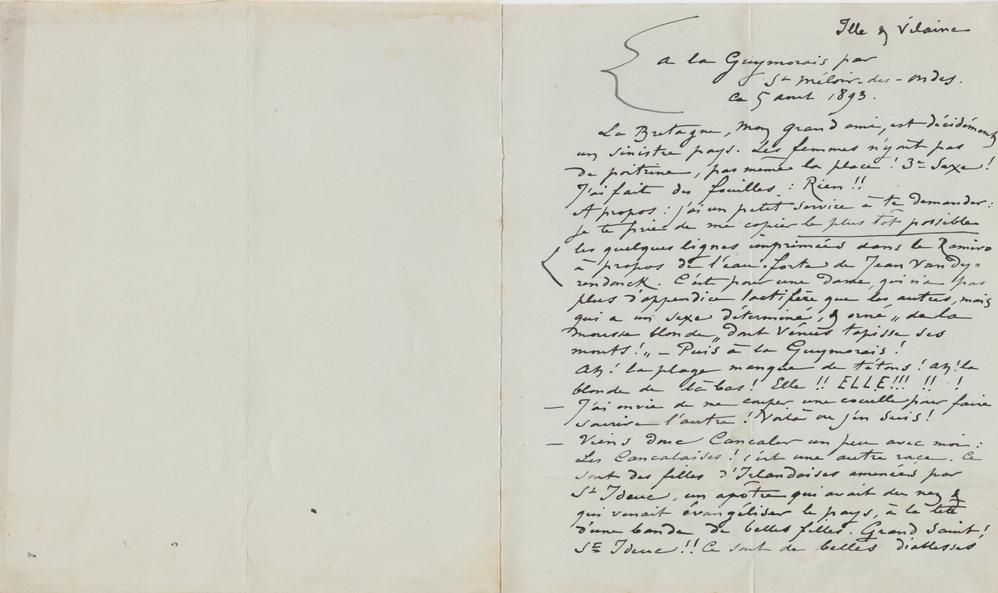 Ille & Vilaine
a la Guymorais par
St Méloir-des-ondes.
Ce 5 aout 1893.
La Bretagne, mon grand ami, est décidément
un sinistre pays. Les femmes n'y ont pas
de poitrine, pas même la place ! 3e Sexe !
J'ai fait des fouilles : Rien !!
A propos : j'ai un petit service à te demander :
je te prie de me copier le plus tôt possible
les quelques lignes imprimées dans le Ramiro
à propos de l'eau-forte de Jean Van Dy-
rendonck. C'est pour une Dame, qui n'a pas
plus d'appendice lactifère que les autres, mais
qui a un sexe déterminé, & orné „ de la
mousse blonde „ dont Vénus tapisse ses
monts ! „ — Puis à la Guymorais !
Ah ! la plage manque de tétons ! ah ! la
blonde de là bas ! Elle !! ELLE !!! !! !
— J'ai envie de me couper une couille pour faire
sourire l'autre ! Voilà où j'en suis !
— Viens donc Cancaler un peu avec moi :
Les Cancalaises ! c'est une autre race. Ce
sont des filles d'Irlandaises amenées par
St Ideuc, un apôtre qui avait du nez &
qui venait évangéliser le pays, à la tête
d'une bande de belles filles. Grand Saint !
St Ideuc !! Ce sont de belles diablesses